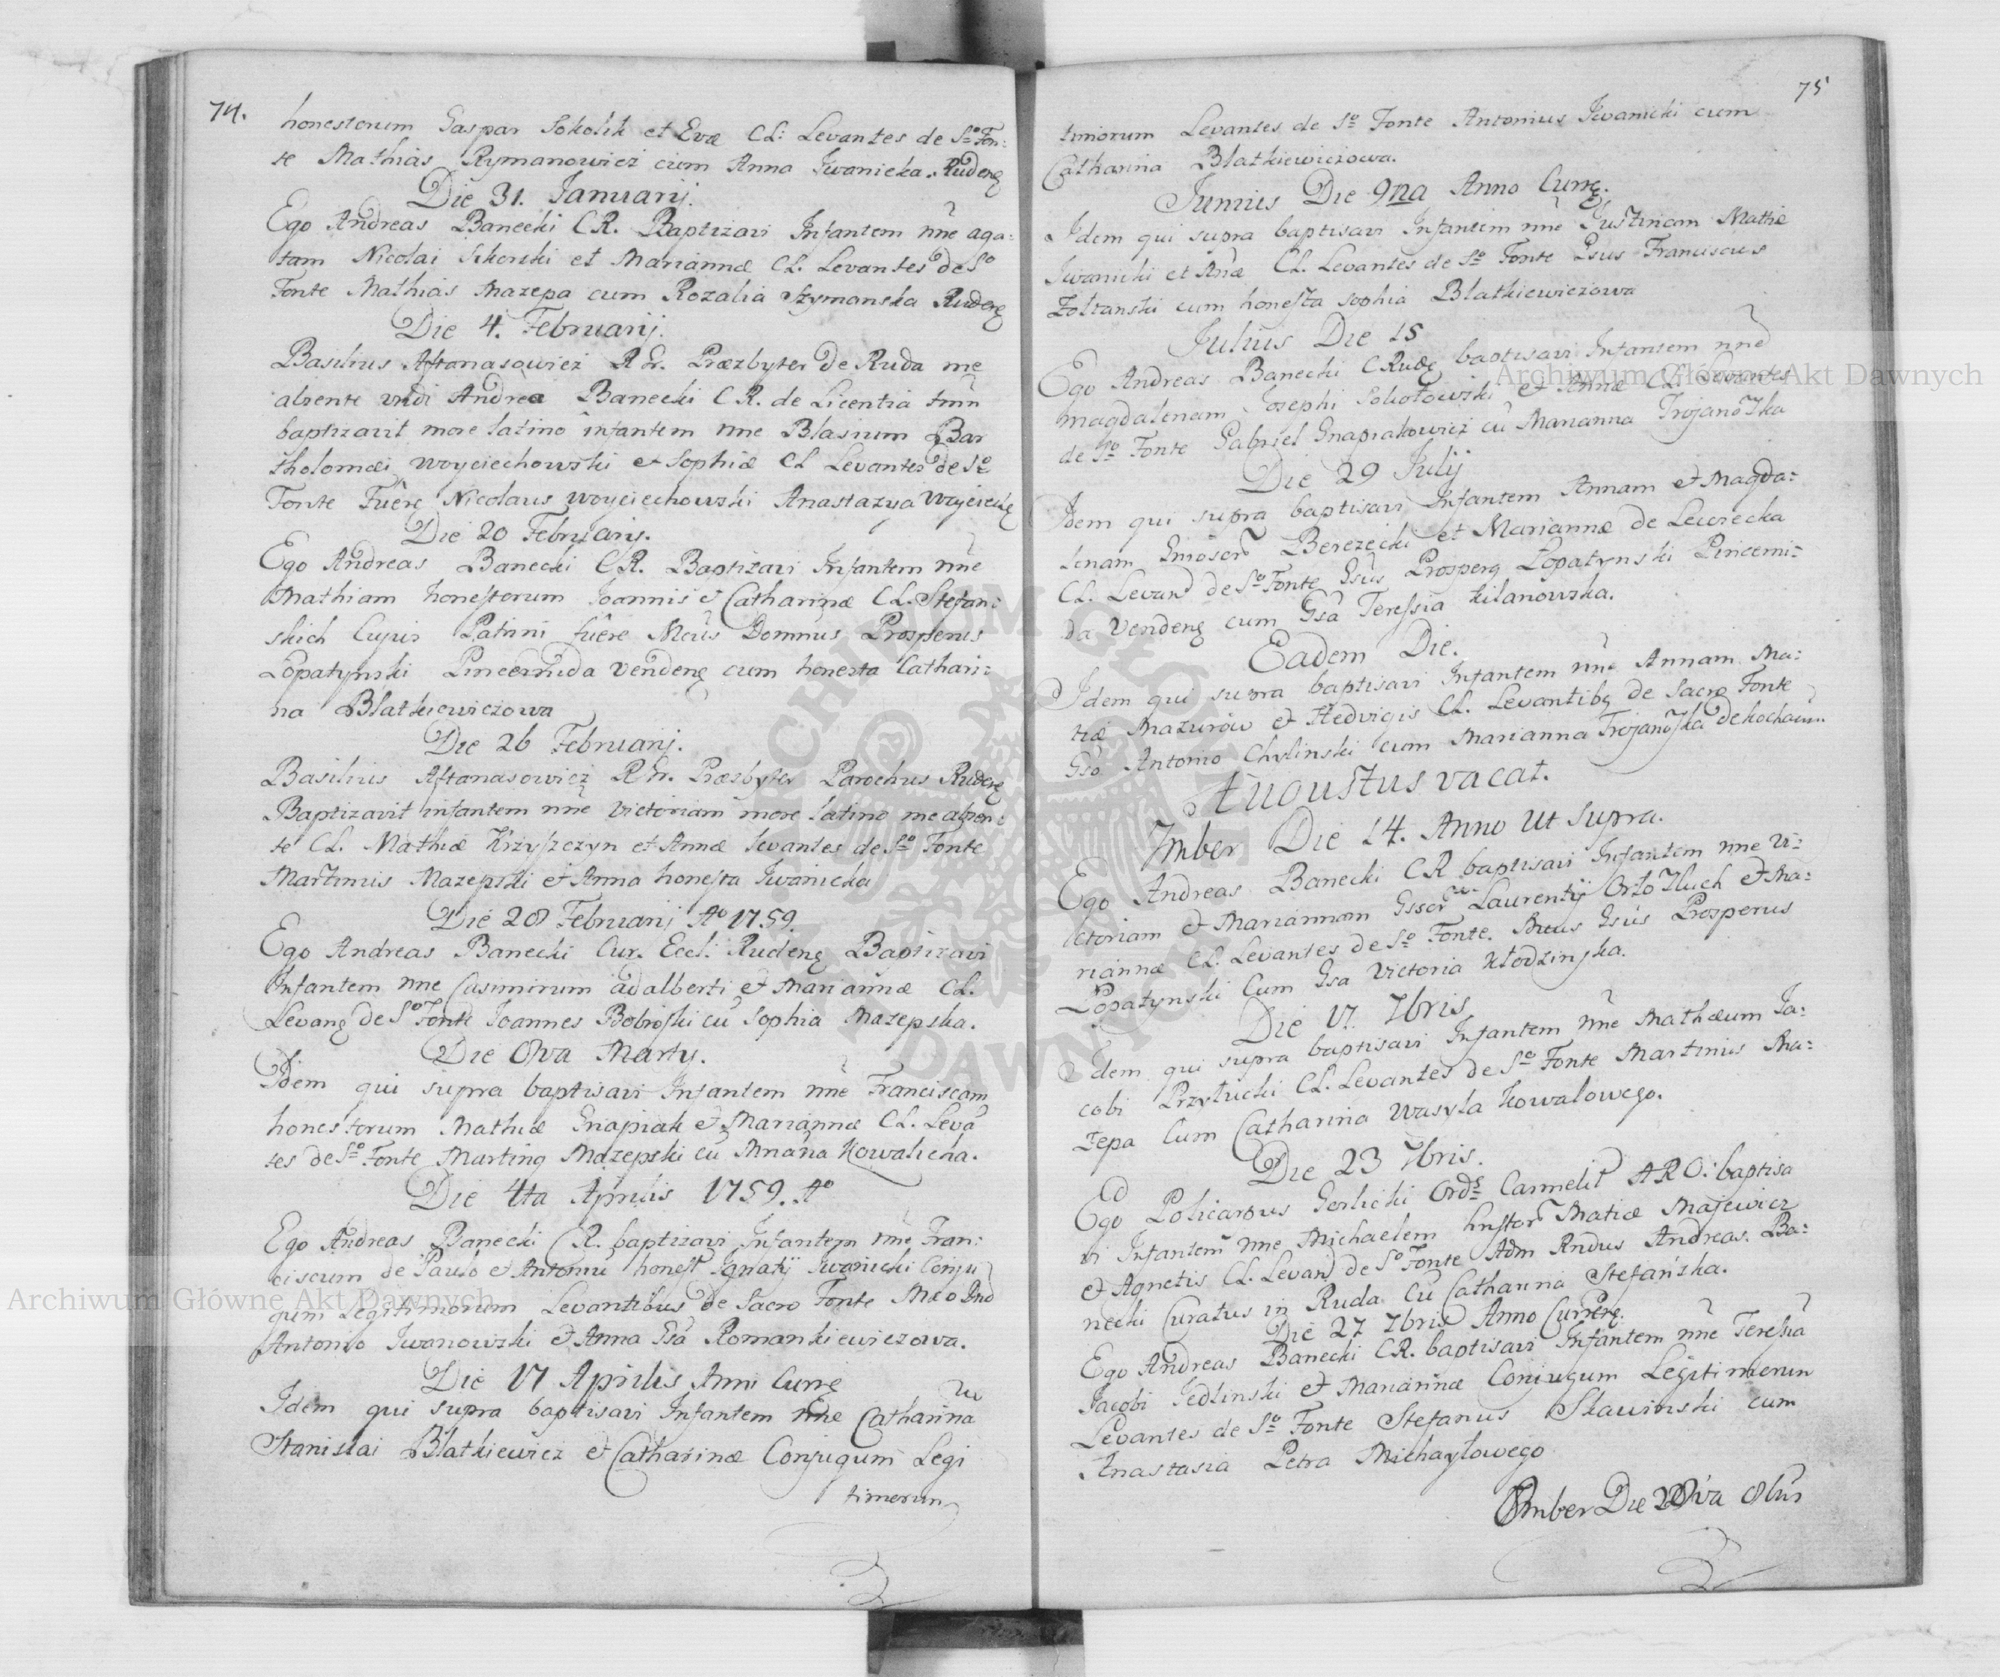 74.
honestorum Gaspar Sokolik et Evæ CL: Levantes de So Fon:
te Mathias Rymanowicz cum Anna Iwanicka. Rudenę
Die 31. Ianuarij.
Ego Andreas Banecki CR. Baptizavi Infantem nne aga:
tam Nicolai Sikorski et Mariannæ CL. Levantes de So
Fonte Mathias Mazepa cum Rozalia Szymanska Rudenę
Die 4. Februarij.
Basilius Aftanasowicz R Gr. Præzbyter de Ruda me
absente Andrea Banecki CR. de Licentia tum
baptizavit more latino infantem nne Blasium Bar
tholomæi Woyciechowski et Sophiæ CL Levantes de So
Fonte Fuêrę Nicolaus Woyciechowski Anastazya
Die 20 Februaris.
Ego Andreas Banecki CR. Baptizavi Infantem nne
Mathiam honestorum Joannis et Catharinæ CL. Stefani
skich Cujus Patrini fuêre Mcûs Domnus Prosperus
Lopatynski Pincernida Vendenę cum honesta Cathari:
na Blatkiewiczowa
Die 26 Februarij.
Basilius Aftanasowicz R Gr. Præzbyter Parochus Rudenę
Baptizavit infantem nne Victoriam more latino me absen:
te CL. Mathiæ Krzyszczyn et Annæ Levantes de So Fonte
Martinus Mazepski et Anna honesta Iwanicka
Die 28 Februarij Ao 1759.
Ego Andreas Banecki Cur. Eccl. Rudenę Baptizavi
Infantem nne Casimirum adalberti et Mariannæ CL.
Levanę de So Fonte Joannes Bobroski cū Sophia Mazepska.
Die 8va Marty.
Idem qui supra baptisavi Infantem nne Franciscam
honestorum Mathiæ Gnapiak et Mariannæ CL. Levā
tes de So Fonte Martinq Mazepski cū Mnana Kowalicha.
Die 4ta Aprilis 1759. Ao
Ego Andreas Banecki CR. baptizavi Infantem nne Fran:
ciscum de Paulo et Antoniū honest Ignatij Iwanicki Conju
gum Legitimorum Levantibus de Sacro Fonte
Antonio Iwanowski et Anna Gsa Romankiewiczowa.
Die 17 Aprilis Anni Currę
Idem qui supra baptisavi Infantem nne Catharina
Stanislai Blatkiewicz et Catharinæ Conjugum Legi
timorum
75
timorum Levantes de So Fonte Antonius Iwanicki cum
Catharina Blatkiewiczowa.
Junius Die 9na Anno Currę.
Idem qui supra baptisavi Infantem nne Justinam Mathiæ
Iwanicki et Anæ CL. Levantes de So Fonte Gsus Franciscus
Zoltanski cum honesta Sophia Blatkiewiczowa
Julius Die 15
Ego Andreas Banecki CRudę baptisavi Infantem nne
Magdalenam Josephi Sokołowski et Annæ CL. Levantes
de So Fonte Gabriel Gnapiakowicz cū Marianna Trojanoska
Die 29 Julij
Idem qui supra baptisavi Infantem Annam et Magda:
lenam Berezecki et Mariannæ de Lewiecka
CL. Levan de So Fonte Gsūs Prosperq Lopatynski Pincerni:
da Vendenę cum Gsa Teressia Kilanowska.
Eadem Die.
Idem qui supra baptisavi Infantem nne Annam Ma:
tiæ Mazurow et Hedvigis CL. Levantibq de Sacro Fonte
Gso Antonio Chylinski cum Marianna Trojanoska
Augustus vacat.
7mber Die 14. Anno Ut Supra.
Ego Andreas Banecki CR baptisavi Infantem nne Vi:
ctoriam et Mariannam Laurentij et Ma:
riannæ CL. Levantes de So Fonte. Gsūs Prosperus
Lopatynski Cum Gsa Victoria Kłodzinska.
Die 17. 7bris
Idem qui supra baptisavi Infantem nne Mathæum Ja:
cobi Przyłucki CL. Levantes de So Fonte Martinus Ma:
zepa Cum Catharina Wasyla Kowalowego.
Die 23 7bris.
Ego Policarpus Gorlicki Ords Carmelit ARO: baptisa
vi Infantem nne Michaelem Matiæ Majewicz
et Agnetis CL. Levan de So Fonte Adm Rndus Andreas. Ba:
necki Curatus in Ruda Cū Catharina Stefańska.
Die 27 7bris Anno Currę.
Ego Andreas Banecki CR. baptisavi Infantem nne Teressiā
Jacobi Jedlinski et Mariannæ Conjugum Legitimorum
Levantes de So Fonte Stefanus Sławinski cum
Anastasia Petra Michayłowego
8mber Die 8bris
Archiwum Główne Akt Dawnych
Archiwum Główne Akt Dawnych
ARCHIWUM GŁÓWNE AKT DAWNYCH